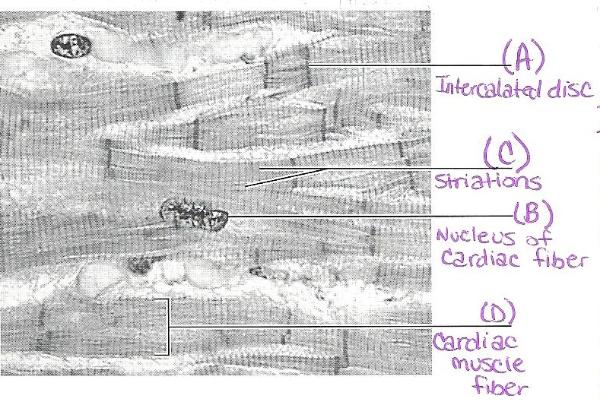 (A)
Intercalated disc
(C)
Striations
(B)
Nucleus of
Cardiac fiber
(D)
Cardiac
muscle
fiber